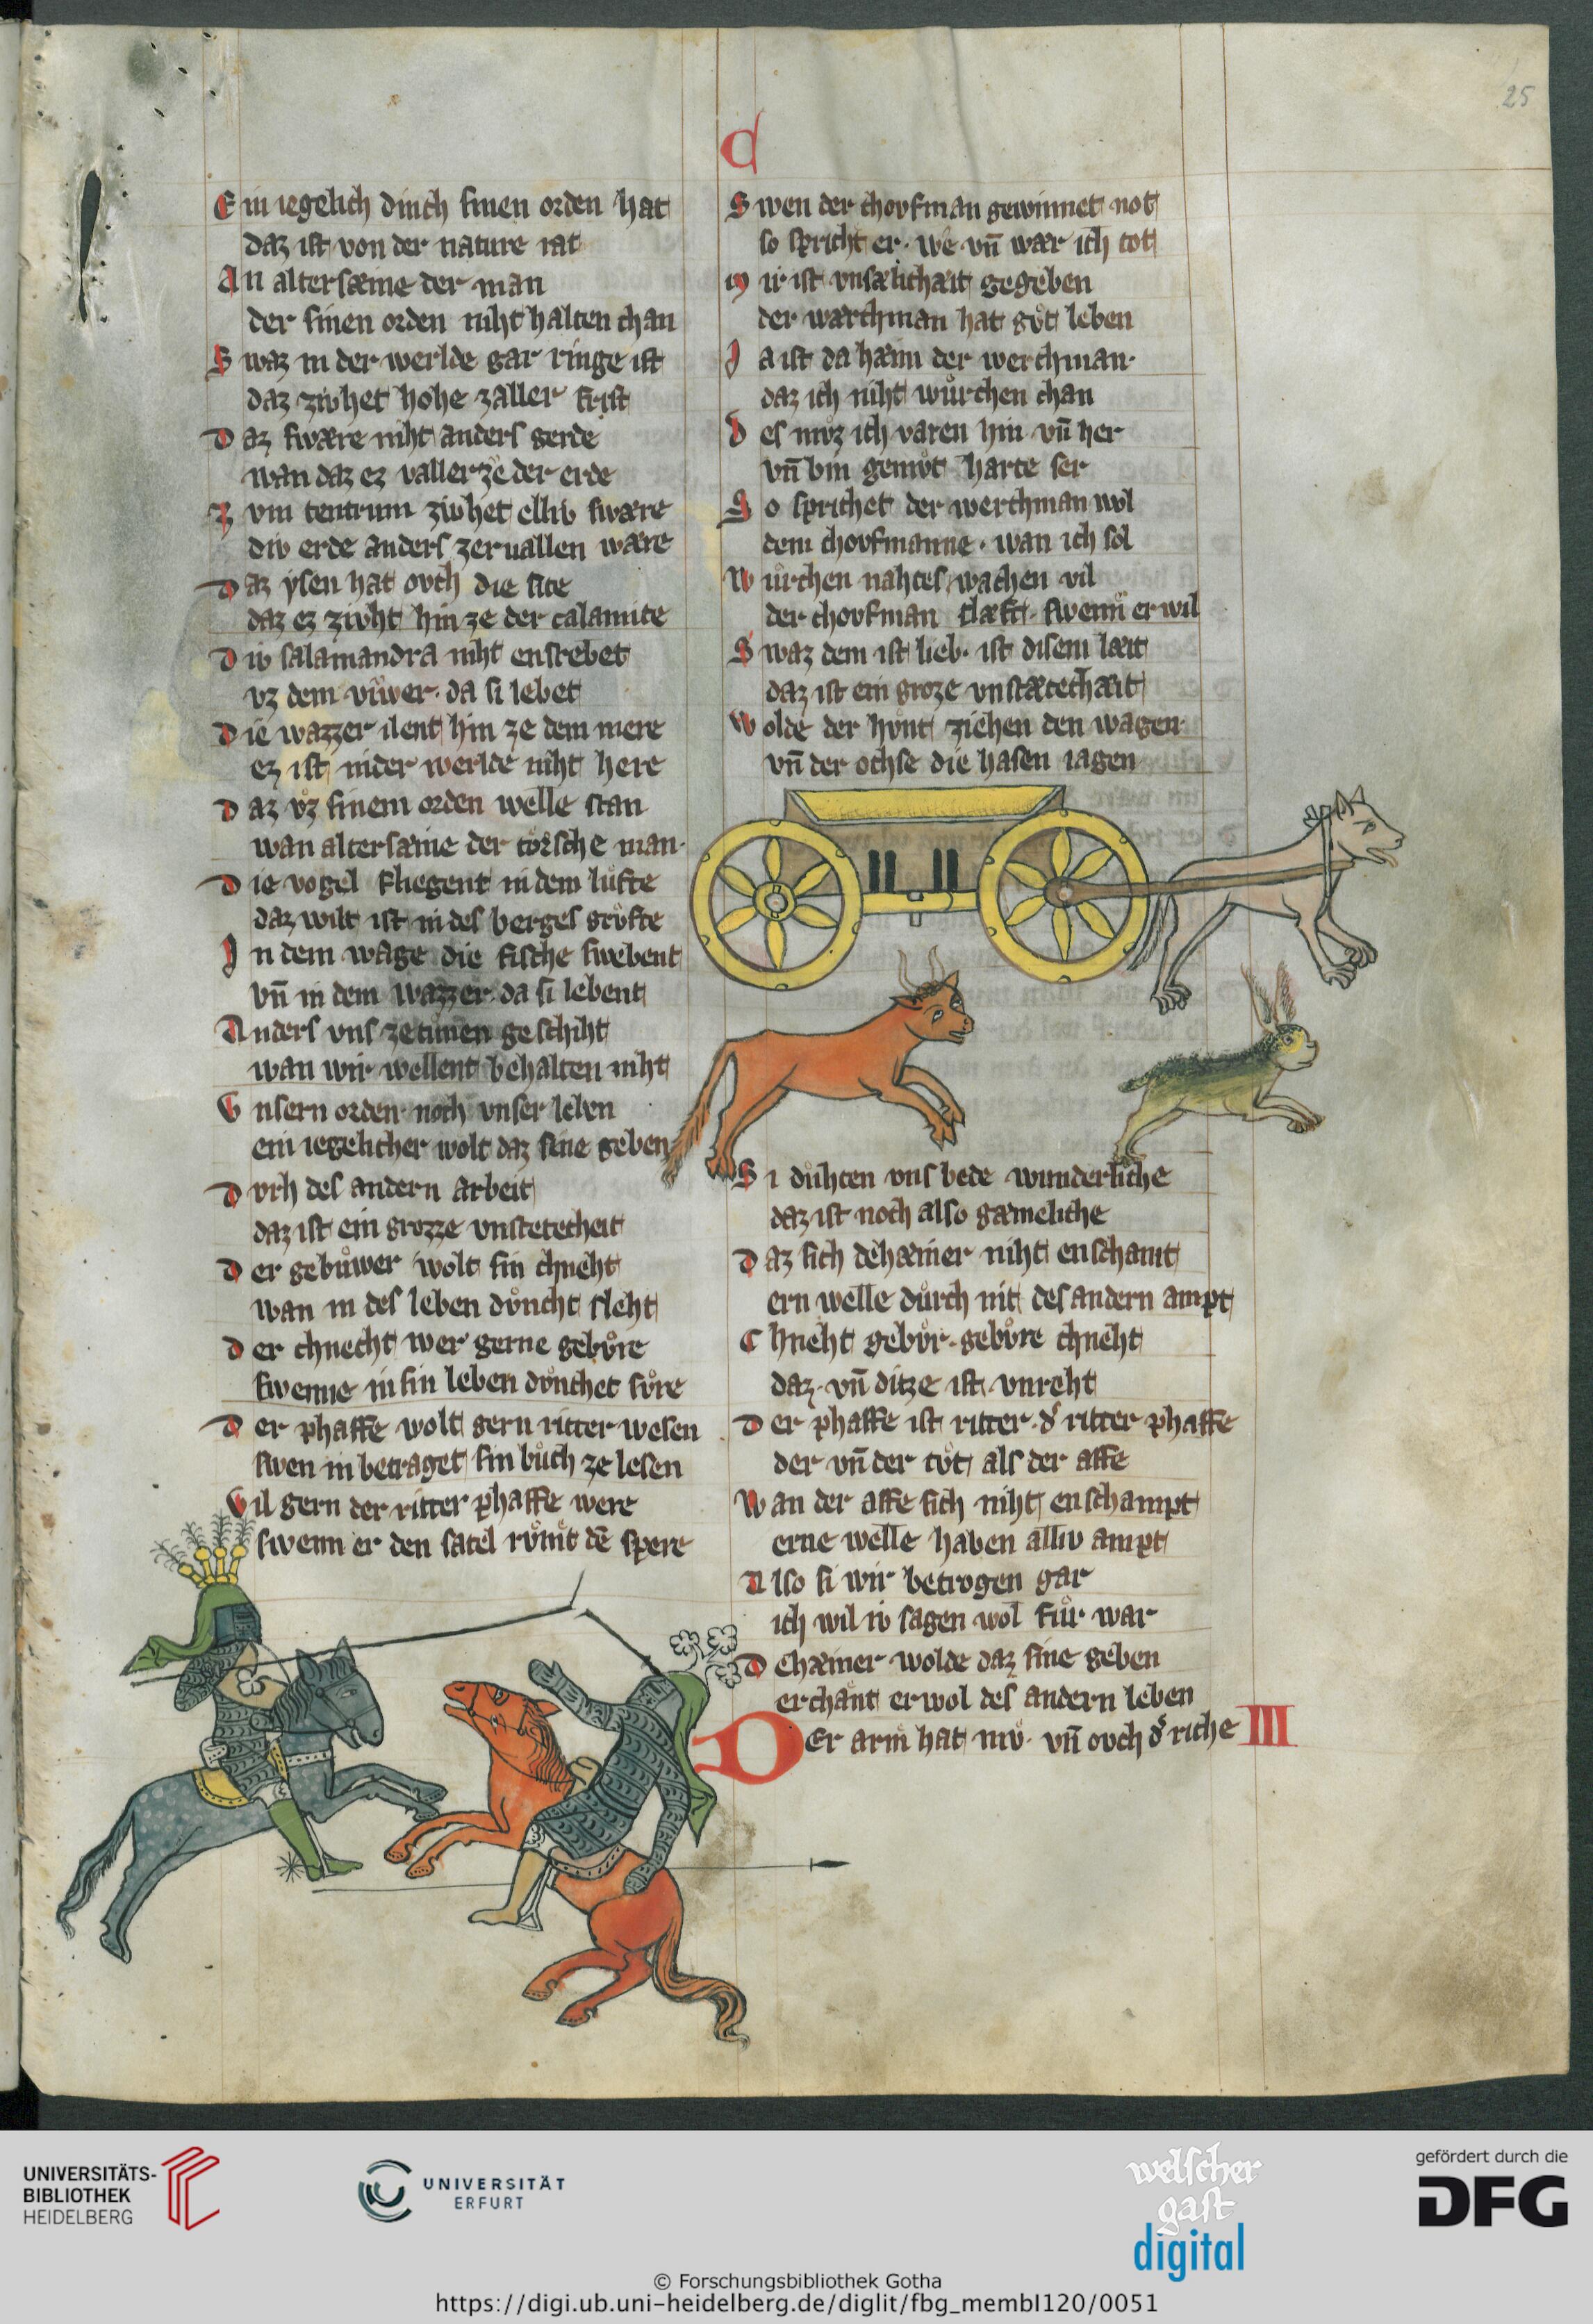 25
C
Ein iegelich dinch sinen orden hat
daz ist von der nature rat
An altersæine der man
der sinen orden niht halten chan
Swaz in der werlde gar ringe ist
daz zivhet hohe zaller frist
Daz swære niht anders gerde
wan daz ez valle ze der erde
Zvm centrum zivhet elliv swære
div erde anders zervallen wære
Daz ysen hat ovch die site
daz ez zivht hin ze der calamite
Div salamandra niht enstrebet
vz dem viwer · da si lebet
Die wazzer ilent hin ze dem mere
ez ist in der werlde niht here
Daz vz sinem orden welle stan
wan altersæine der torsche man ·
Die vogel fliegent in dem lufte
daz wilt ist in des berges grufte
In dem wage die fische swebent
vn̄ in dem wazzer · da si lebent
Anders vns ze tuͦnen geschiht
wan wir wellent behalten niht
Vnsern orden · noch vnser leben
ein iegelicher wolt daz sine geben
Dvrh des andern arbeit
daz ist ein grozze vnstetecheit
Der gebuͦwer wolt sin chneht
wan in des leben duncht sleht
Der chnecht wer gerne gebvͦre
swenne in sin leben dvnchet svͦre
Der phaffe wolt gern ritter wesen
swen in betraget sin buͦch ze lesen
Vil gern der ritter phaffe were
swenn er den satel rvͦmt dē spere
Swen der chovfman gewinnet not
so spricht er · we vn̄ wær ich tot
Mir ist vnsælichæit gegeben
der warchman hat gvͦt leben
Ja ist da hæim der werchman ·
daz ich niht wuͦrchen chan
Des mvͦz ich varen hin vn̄ her
vn̄ bin gemvͦt harte ser
So sprichet der werchman wol
dem chovfmanne · wan ich sol
Wuͦrchen nahtes wachen vil
der chovfman slæft · swenn er wil
Swaz dem ist lieb · ist disem læit
daz ist ein groze vnstætechæit
Wolde der hvnt ziehen den wagen ·
vn̄ der ochse die hasen iagen
Si duͦhten vns bede wunderliche
daz ist noch also gæmeliche
Daz sich dehæiner niht enschamt
ern welle durch nit des andern ampt
Chneht gebvͦr · gebvͦre chneht
daz · vn̄ ditze ist vnreht
Der phaffe ist ritter · d' ritter phaffe
der vn̄ der tvͦt als der affe
Wan der affe sich niht enschampt
erne welle haben alliv ampt
Also si wir betrogen gar
ich wil iv sagen wol fuͦr war
Dehæiner wolde daz sine geben
erchant er wol des andern leben
Der arm hat mvͦ · vn̄ ovch d' riche III
UNIVERSITÄTS-
BIBLIOTHEK
HEIDELBERG
UNIVERSITÄT
ERFURT
welscher
gast
digital
gefördert durch die
DFG
© Forschungsbibliothek Gotha
https://digi.ub.uni-heidelberg.de/diglit/fbg_membI120/0051